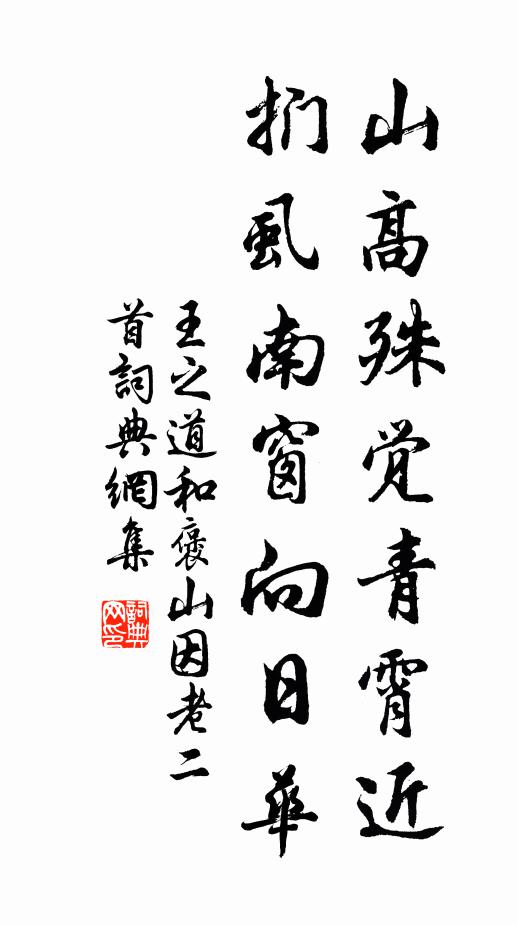 山高殊觉青霄近
捫虱南窗向日華
王之道和褒山因老二
首詞典網集
詞典
网印